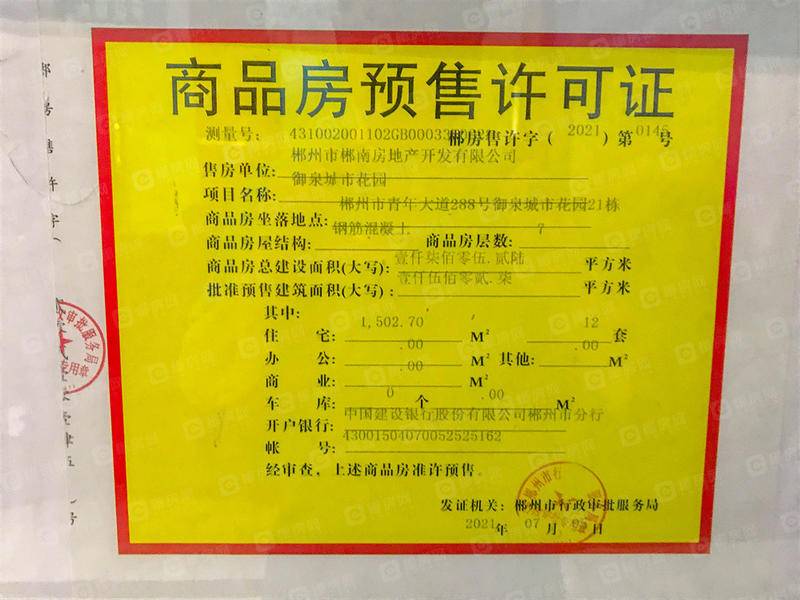 商品房预售许可证
测量号: 431002001102GB00033
郴房售许字( 2021 )第 014 号
郴州市郴南房地产开发有限公司
售房单位:
御泉城市花园
项目名称:
郴州市青年大道288号御泉城市花园21栋
商品房坐落地点:
钢筋混凝土 7
商品房屋结构: 商品房层数:
壹仟柒佰零伍.贰陆
商品房总建设面积(大写): 平方米
壹仟伍佰零贰.柒
批准预售建筑面积(大写): 平方米
其中:
1,502.70 12
住 宅: M² 套
.00 .00
办 公: M² 其他: M²
.00
商 业: M²
0 .00
车 库: 个 M²
中国建设银行股份有限公司郴州市分行
开户银行:
43001504070052525162
帐 号:
经审查,上述商品房准许预售。
发证机关: 郴州市行政审批服务局
2021 年 07 月 日
郴州市行
审批服务局
专用章
房
售
许
字
(
号